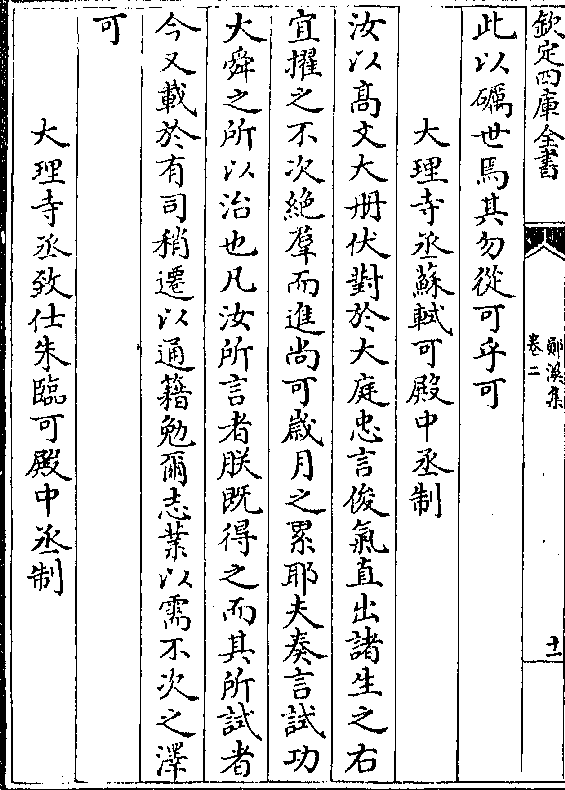 欽定四庫全書
鄖溪集
卷二
十一
此以礪世焉其勿從可乎可
大理寺丞蘇軾可殿中丞制
汝以高文大冊伏對於大庭忠言俊氣直出諸生之右
宜擢之不次絶羣而進尚可嵗月之累耶夫奏言試功
大舜之所以治也凡汝所言者朕既得之而其所試者
今又載於有司稍遷以通籍勉爾志業以需不次之澤
可
大理寺丞致仕朱臨可殿中丞制